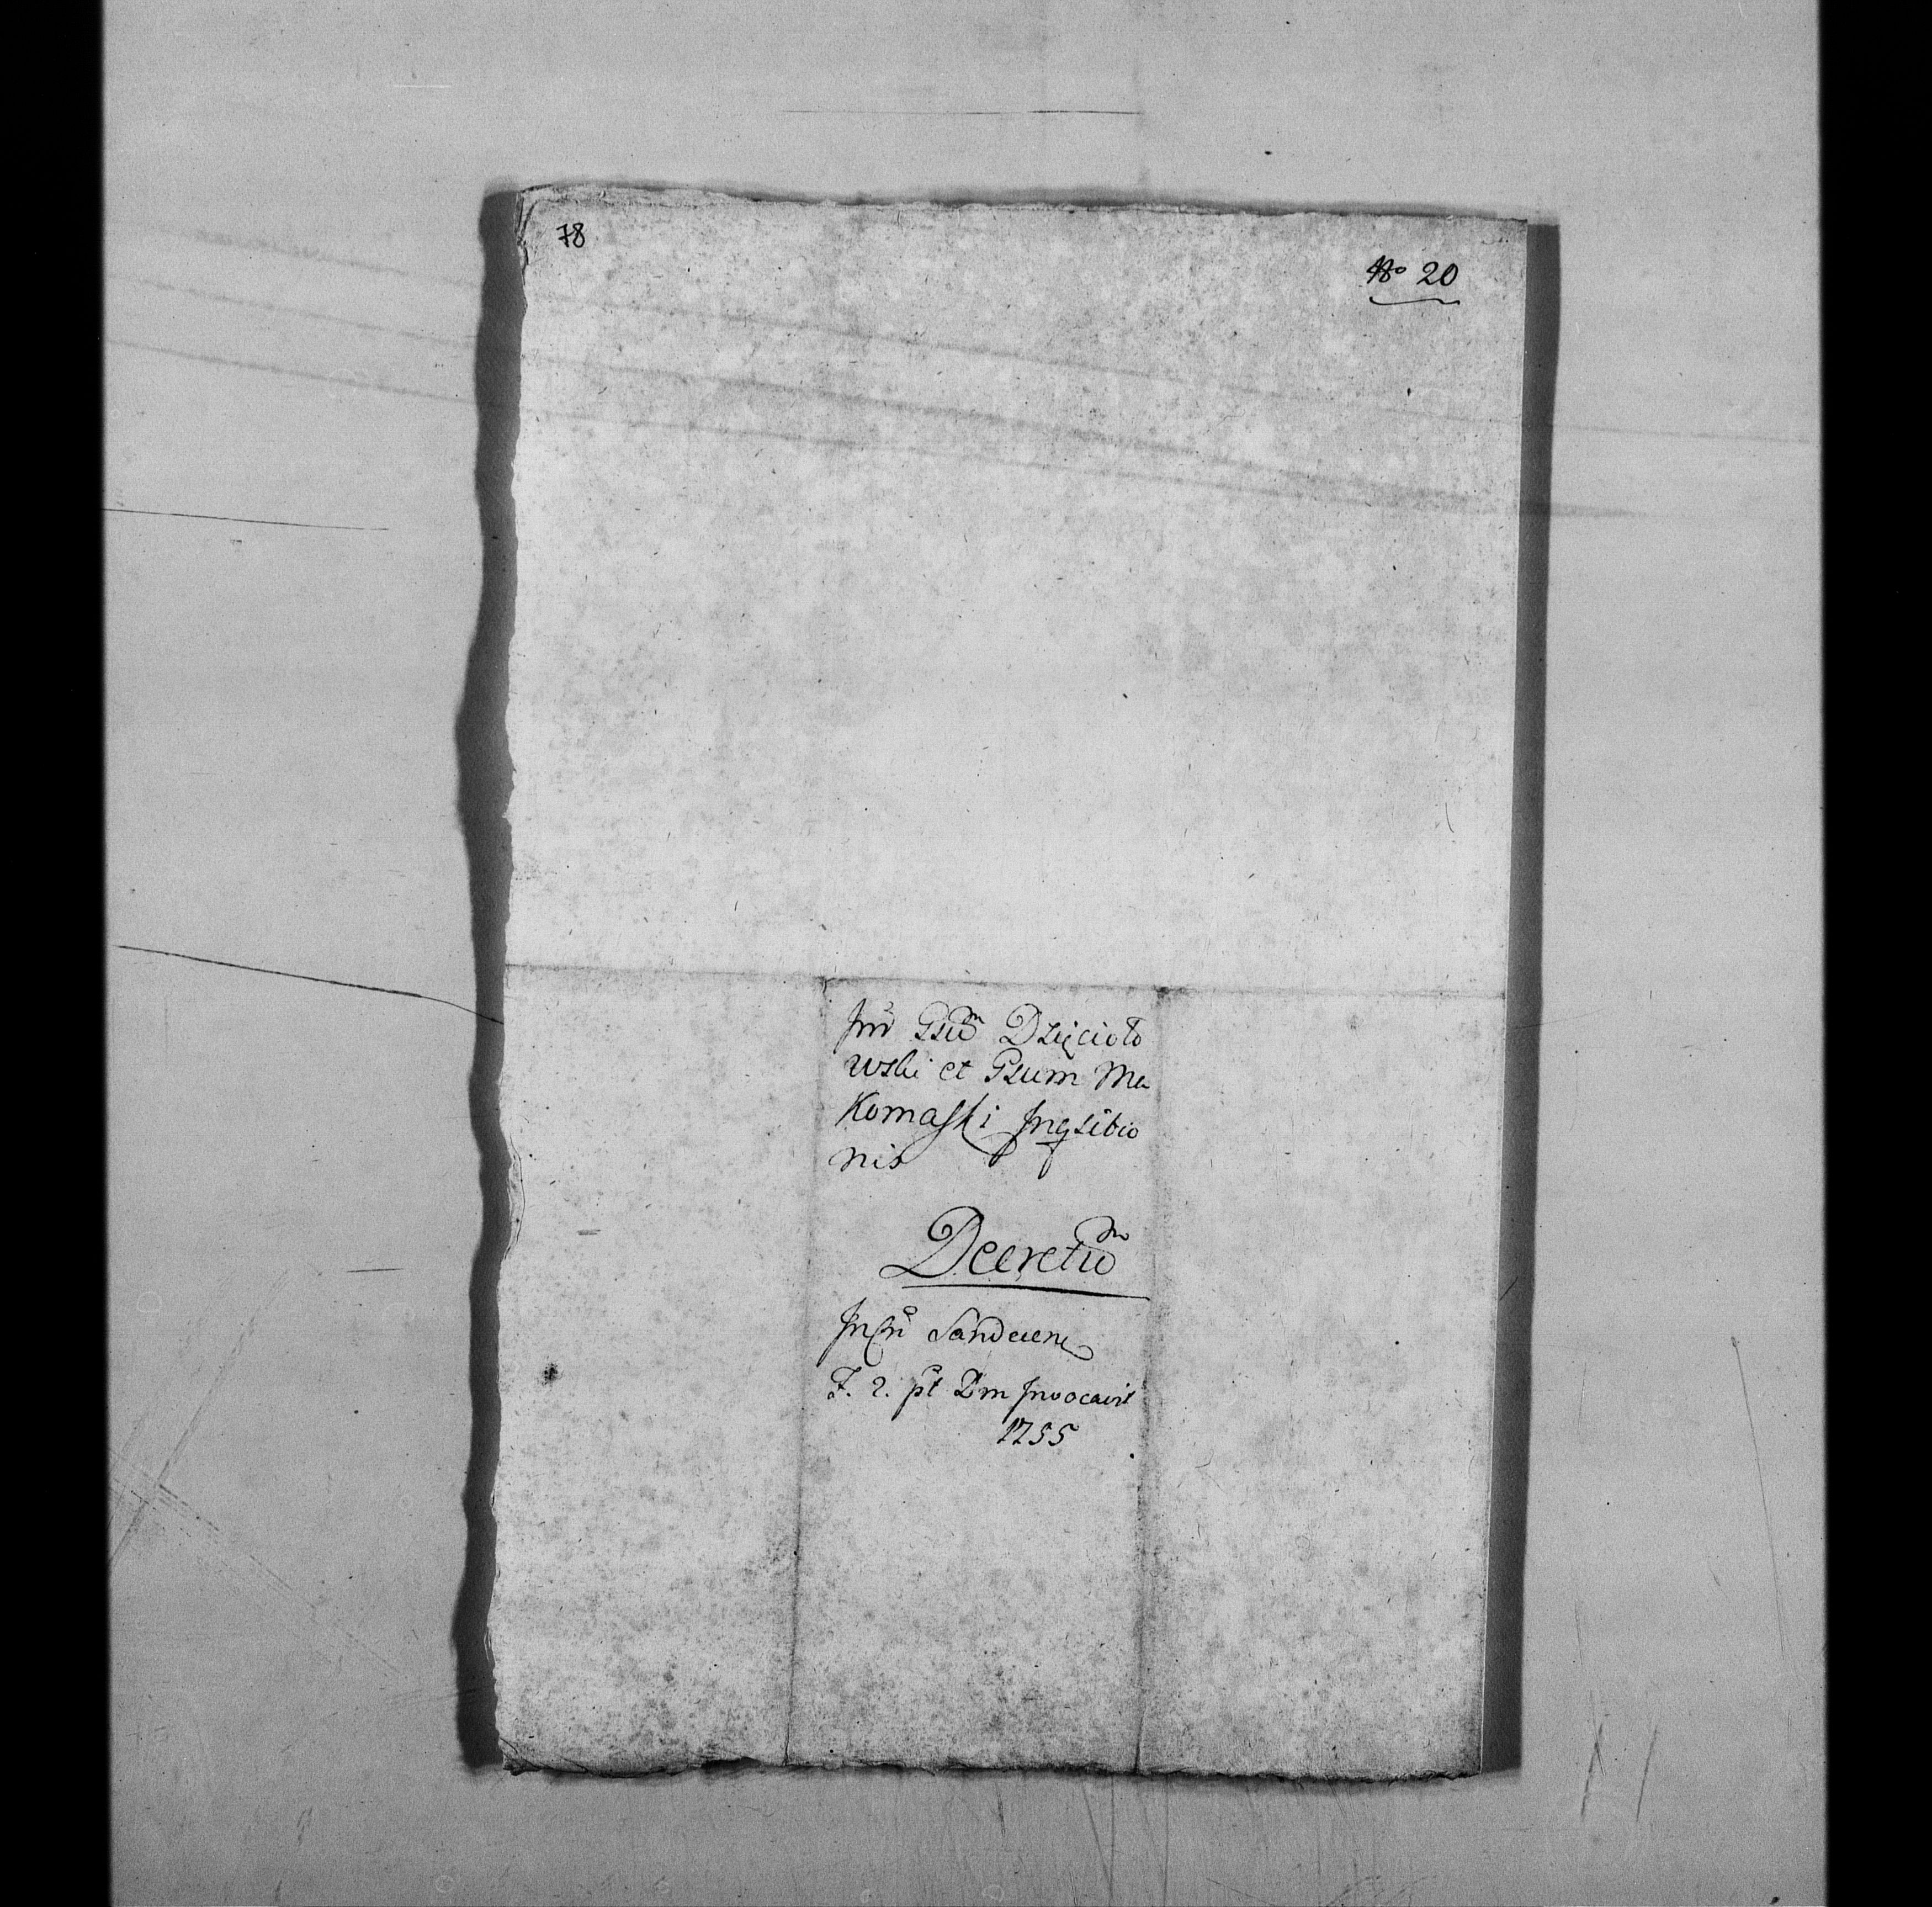 78
No 20
Inr Gsũm Dzięcioło
wski et Gsum Ma
Komaski Inqsitio
nis
Decretũm
In Cũ Sandecen
F. 2. pt Dm Invocavit
1755